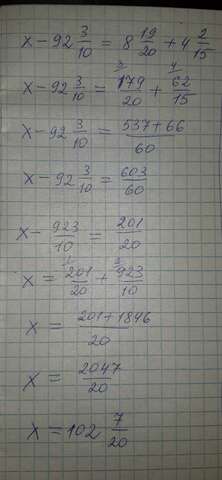 x - 92 3/10 = 8 19/20 + 4 2/15
x - 92 3/10 = 179/20 + 62/15
x - 92 3/10 = 537+66/60
x - 92 3/10 = 603/60
x - 923/10 = 201/20
x = 201/20 + 923/10
x = 201+1846/20
x = 2047/20
x = 102 7/20